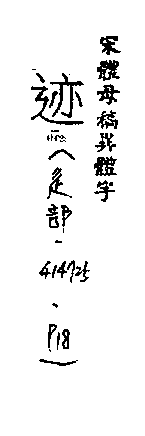 宋體母稿異體字
迹（辵部-414725、P18）